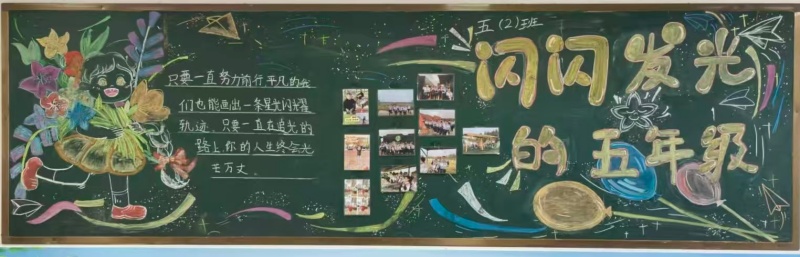 五（2）班
闪闪发光
的五年级
只要一直努力前行平凡的我
们也能画出一条星光闪耀
轨迹．只要一直在追光的
路上你的人生终会光
芒万丈．